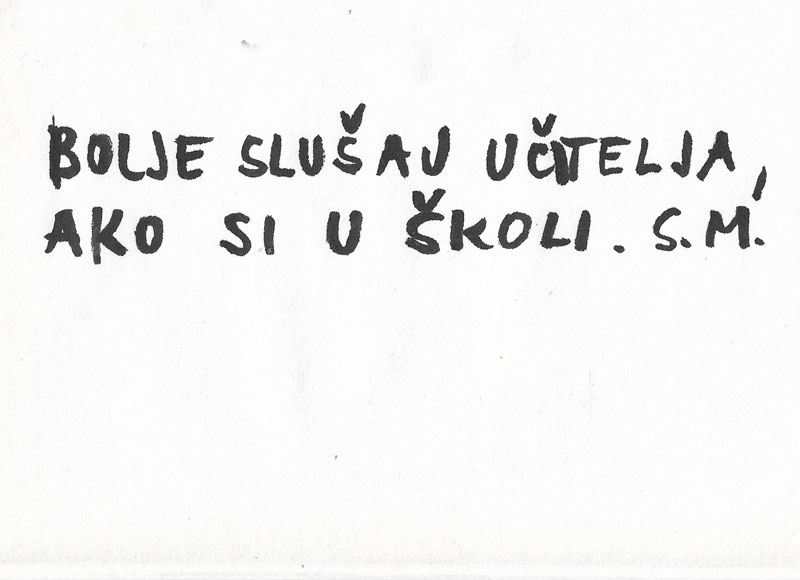 BOLJE SLUŠAJ UČITELJA,
AKO SI U ŠKOLI. S.M.